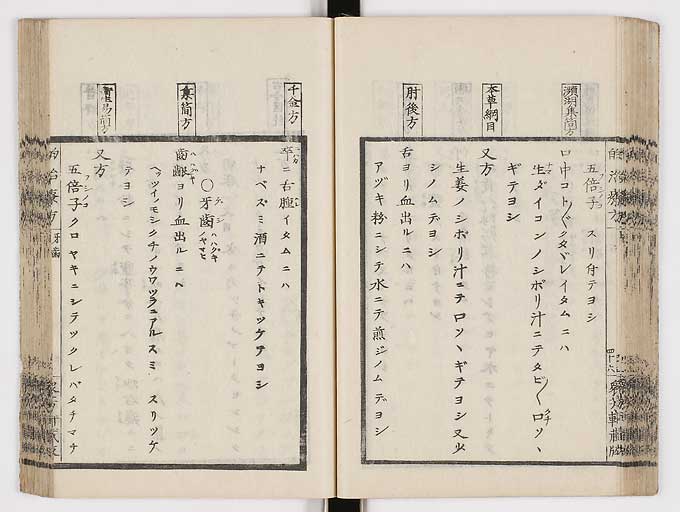 五倍子 スリ付テヨシ
瀕湖集簡方
口中コト〴〵クタヾレイタムニハ
生ダイコンノシボリ汁ニテタビ〳〵口ソヽ
ギテヨシ
本草綱目
又方
生姜ノシボリ汁ニテ口ソヽギテヨシ又少
シノムデヨシ
肘後方
舌ヨリ血出ルニハ
アヅキ粉ニシテ水ニテ煎ジノムデヨシ
千金方
卒ニ舌腫イタムニハ
ナベズミ酒ニテトキツケテヨシ
〇牙齒
集簡方
齒齦ヨリ血出ルニハ
スリツケ
テヨシ
又方
五倍子クロヤキニシテツクレバタチマチ